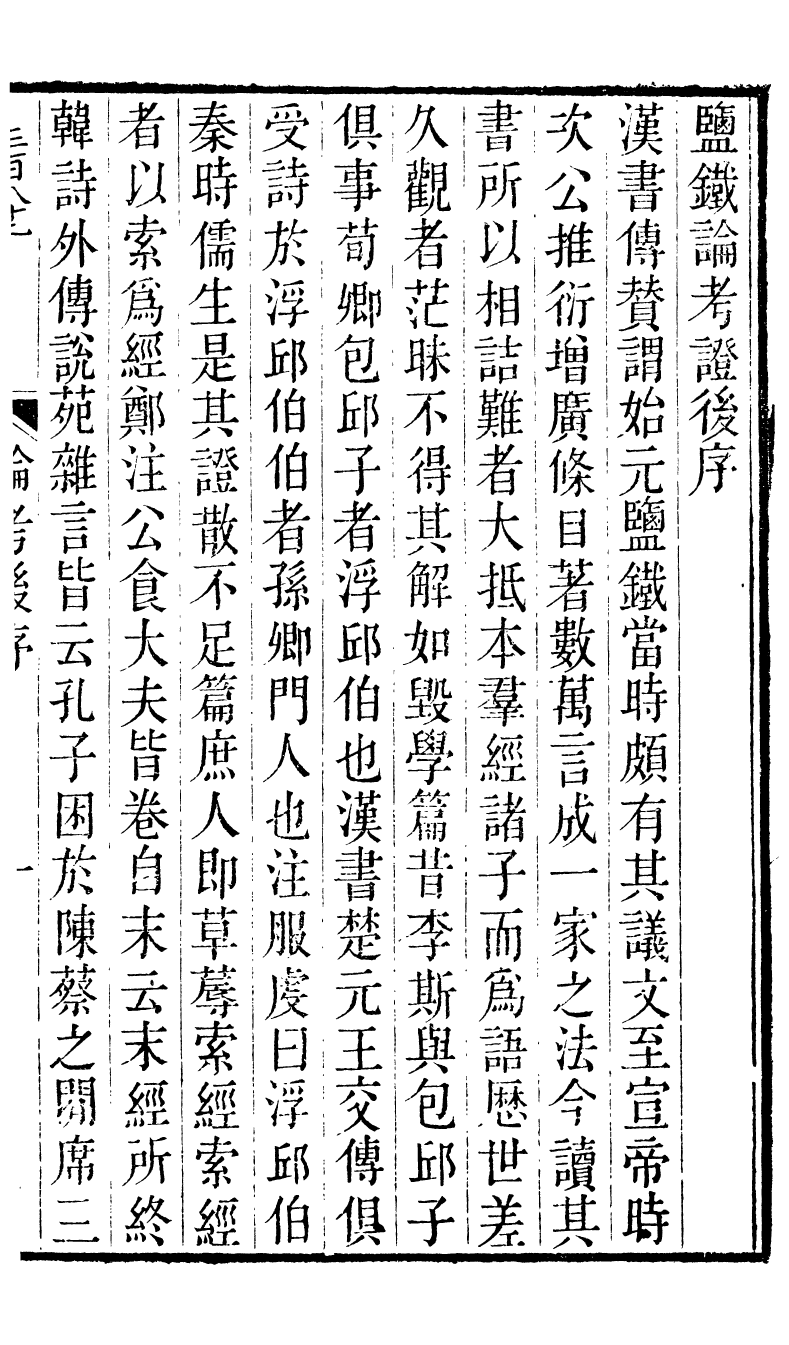 鹽鐵論考證後序
漢書傳贊謂始元鹽鐵當時頗有其議文至宣帝時
次公推衍增廣條目著數萬言成一家之法今讀其
書所以相詰難者大抵本羣經諸子而爲語歷世差
久觀者茫昧不得其解如毀學篇昔李斯與包邱子
俱事荀卿包邱子者浮邱伯也漢書楚元王交傳俱
受詩於浮邱伯伯者孫卿門人也注服虔曰浮邱伯
秦時儒生是其證散不足篇庶人即草蓐索經索經
者以索爲經鄭注公食大夫皆卷自末云末經所終
韓詩外傳說苑雜言皆云孔子困於陳蔡之閒席三
論考後序
一